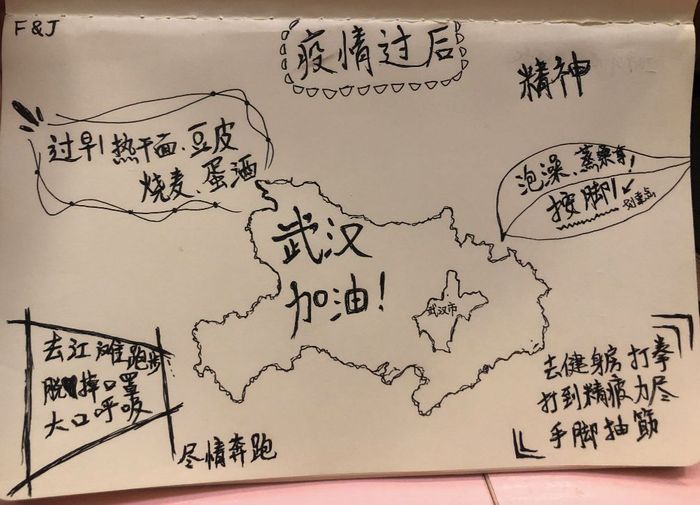 F & J
疫情过后
精神
过早!热干面、豆皮
烧麦、蛋酒
泡澡、蒸桑拿!
按脚!
武汉
加油!
武汉市
去江滩跑步
脱掉口罩
大口呼吸
尽情奔跑
去健身房打拳
打到精疲力尽
手脚抽筋